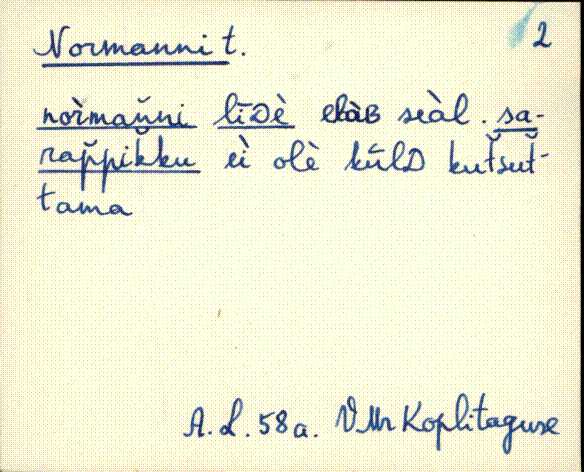 Normanni t. 2
nòrmaňni līDè elàB seàl. sa-
rap̌pik̆ku ei olè kūlD kut̆sut̆-
tama
A.L. 58a. VMr Koplitaguse